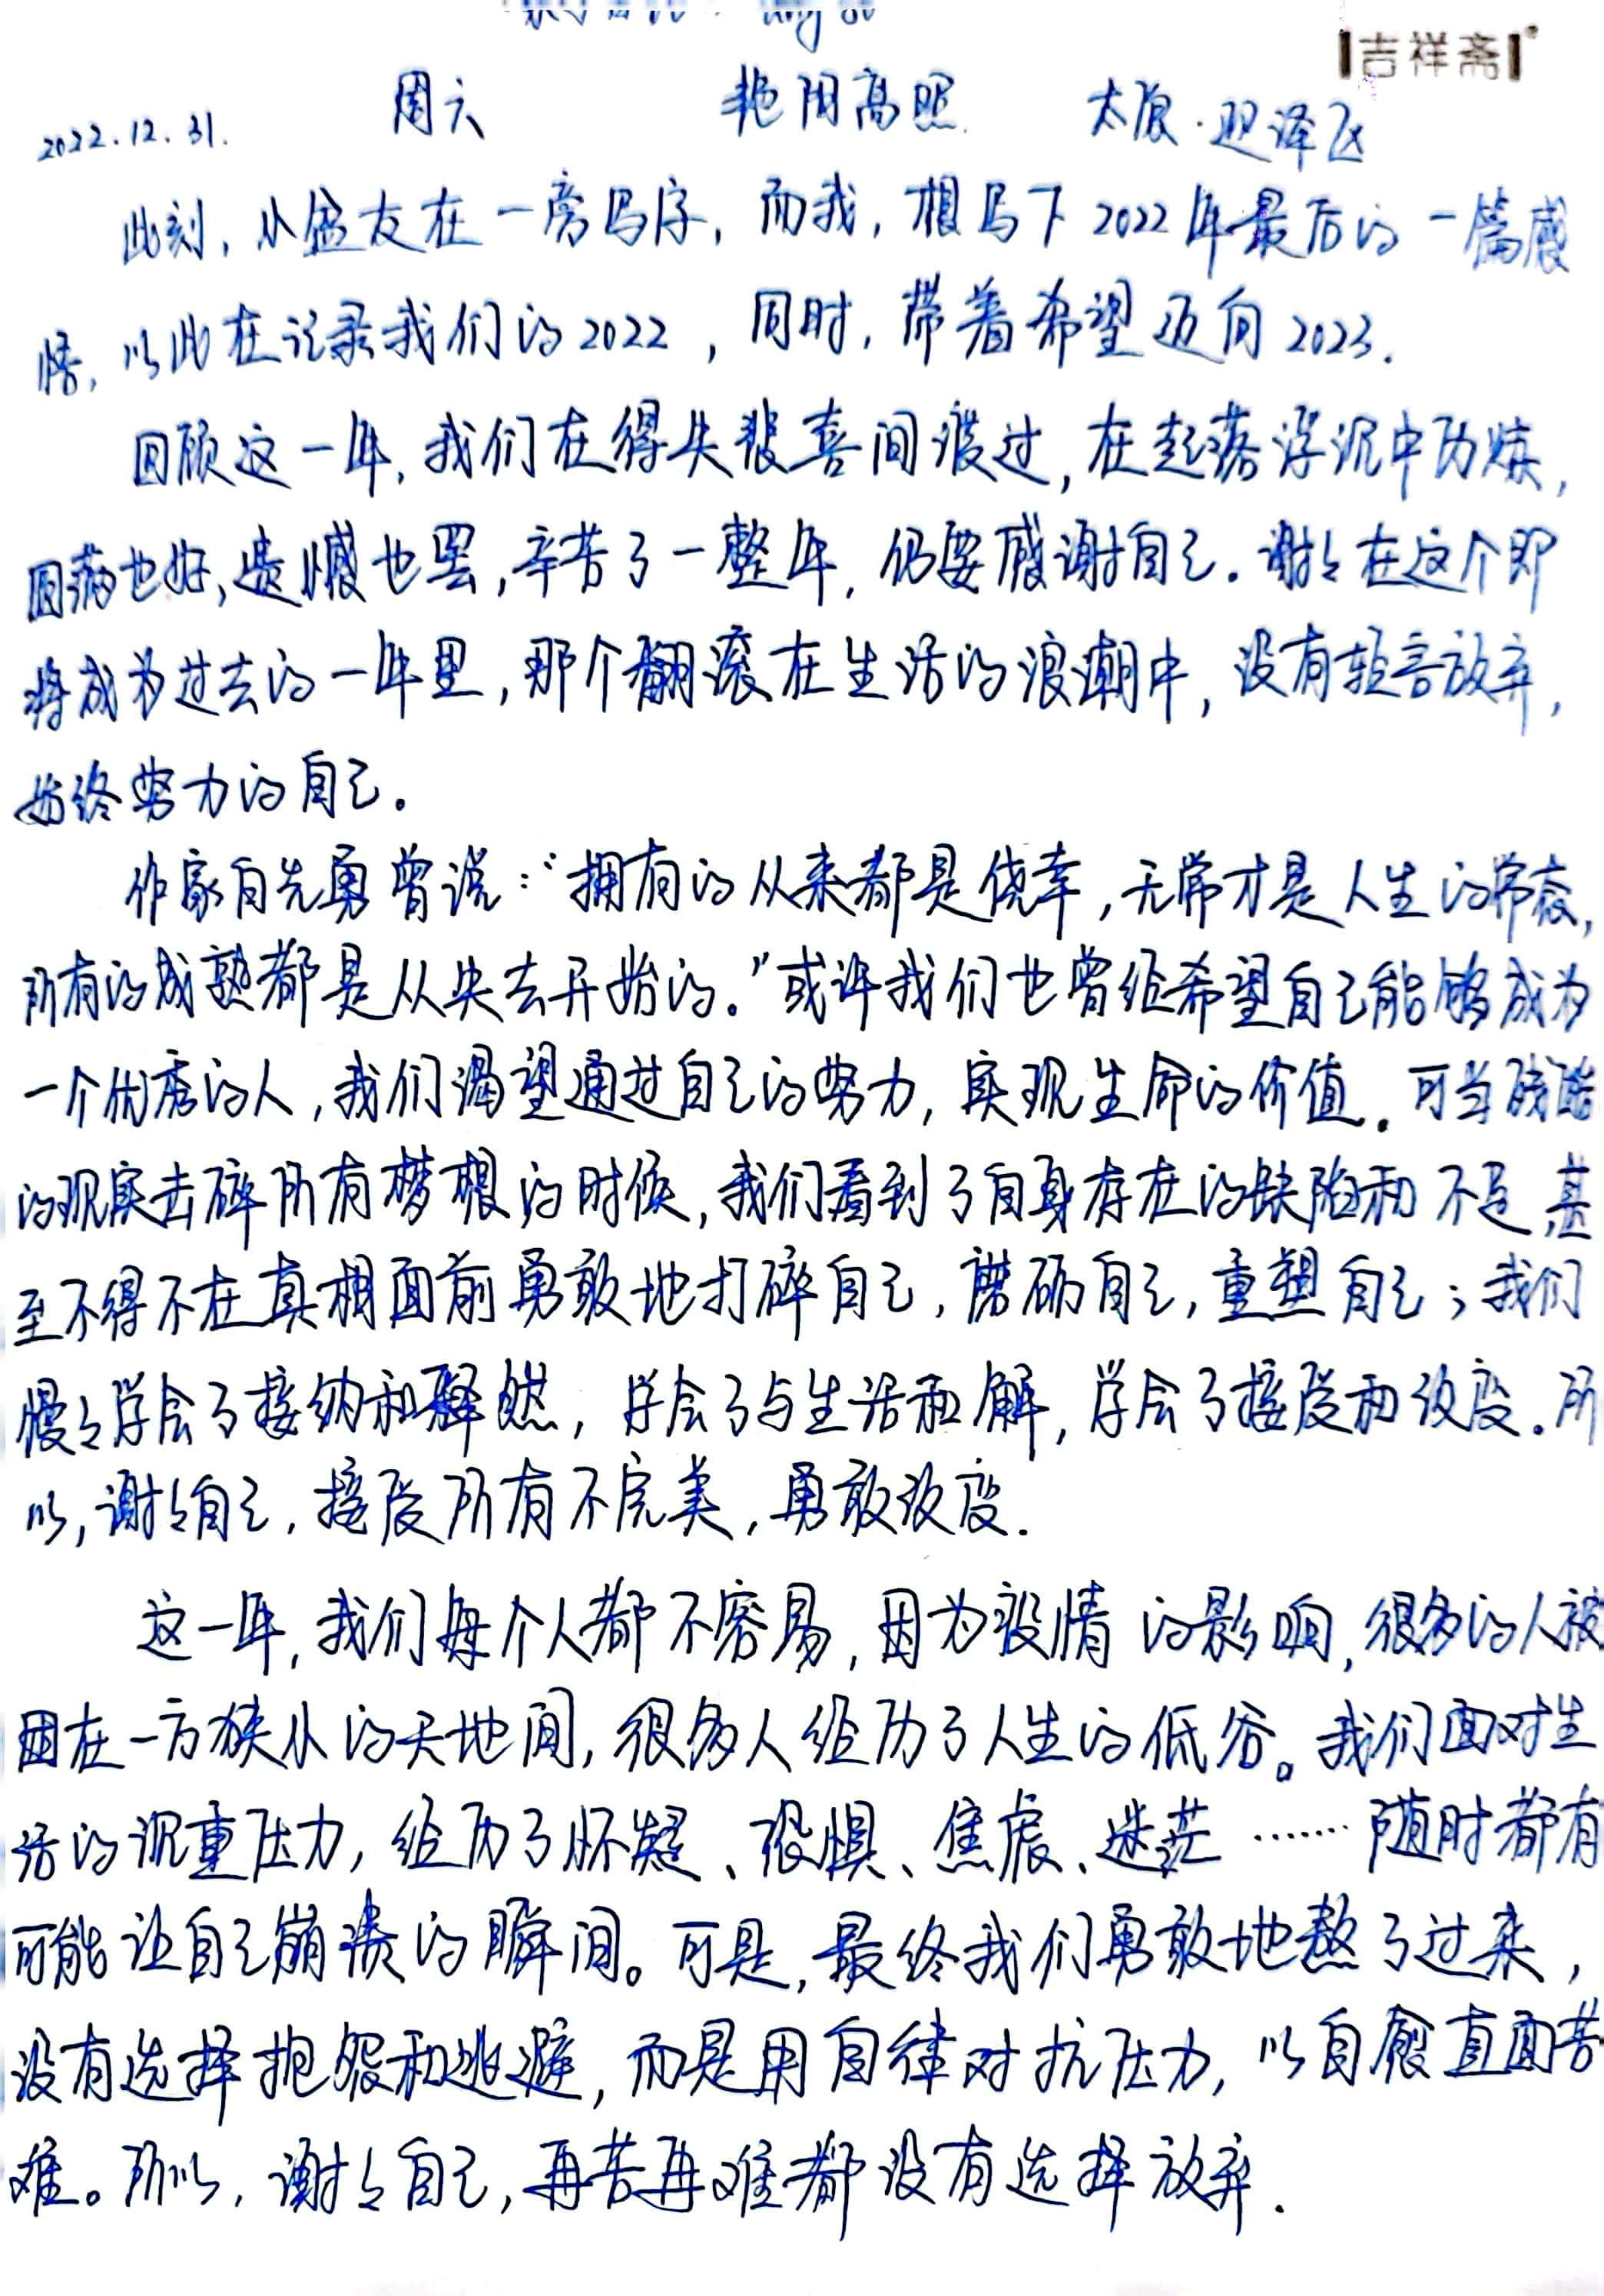 吉祥斋
2022.12.31. 周六 艳阳高照 太原·迎泽区
此刻，小盆友在一旁写字，而我，想写下2022年最后的一篇感
悟，以此在记录我们的2022，同时，带着希望迈向2023.
回顾这一年，我们在得失悲喜间渡过，在起落浮沉中历炼，
圆满也好，遗憾也罢，辛苦了一整年，仍要感谢自己。谢谢在这个即
将成为过去的一年里，那个翻滚在生活的浪潮中，没有轻言放弃，
始终努力的自己。
作家白先勇曾说："拥有的从来都是侥幸，无常才是人生的常态，
所有的成熟都是从失去开始的。"或许我们也曾经希望自己能够成为
一个优秀的人，我们渴望通过自己的努力，实现生命的价值。可当残酷
的现实击碎所有梦想的时候，我们看到了自身存在的缺陷和不足，甚
至不得不在真相面前勇敢地打碎自己，磨砺自己，重塑自己；我们
慢慢学会了接纳和释然，学会了与生活和解，学会了接受和改变。所
以，谢谢自己，接受所有不完美，勇敢改变.
这一年，我们每个人都不容易，因为疫情的影响，很多的人被
困在一方狭小的天地间，很多人经历了人生的低谷。我们面对生
活的沉重压力，经历了怀疑、恐惧、焦虑、迷茫……随时都有
可能让自己崩溃的瞬间。可是，最终我们勇敢地熬了过来，
没有选择抱怨和逃避，而是用自律对抗压力，以自愈直面苦
难。所以，谢谢自己，再苦再难都没有选择放弃.